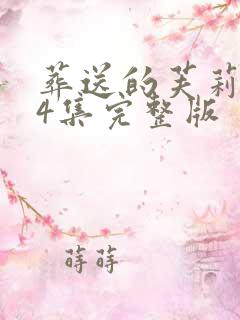 葬送的芙莉
4集完整版
蒔蒔